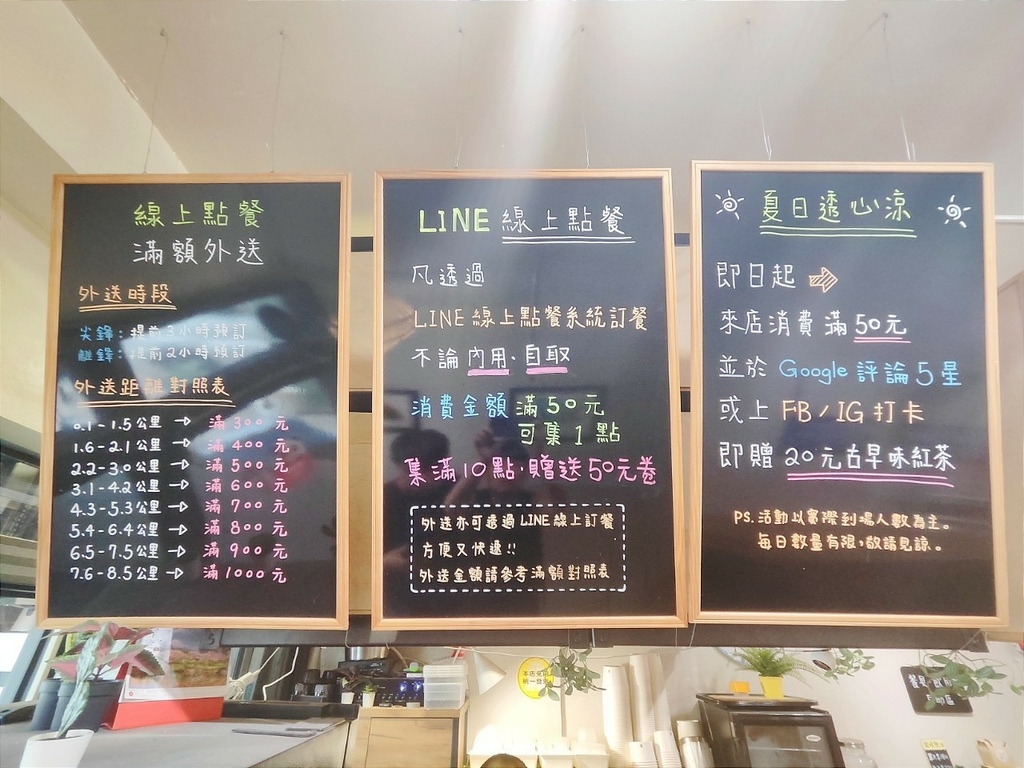 線上點餐
滿額外送
外送時段
尖鋒：提前3小時預訂
離鋒：提前2小時預訂
外送距離對照表
0.1-1.5公里→滿300元
1.6-2.1公里→滿400元
2.2-3.0公里→滿500元
3.1-4.2公里→滿600元
4.3-5.3公里→滿700元
5.4-6.4公里→滿800元
6.5-7.5公里→滿900元
7.6-8.5公里→滿1000元
LINE線上點餐
凡透過
LINE線上點餐系統訂餐
不論內用、自取
消費金額滿50元
可集1點
集滿10點，贈送50元卷
外送亦可透過LINE線上訂餐
方便又快遞!!
外送金額請參考滿額對照表
夏日透心涼
即日起
來店消費滿50元
並於Google評論5星
或上FB/IG打卡
即贈20元古早味紅茶
PS.活動以實際到場人數為主。
每日數量有限，敬請見諒。